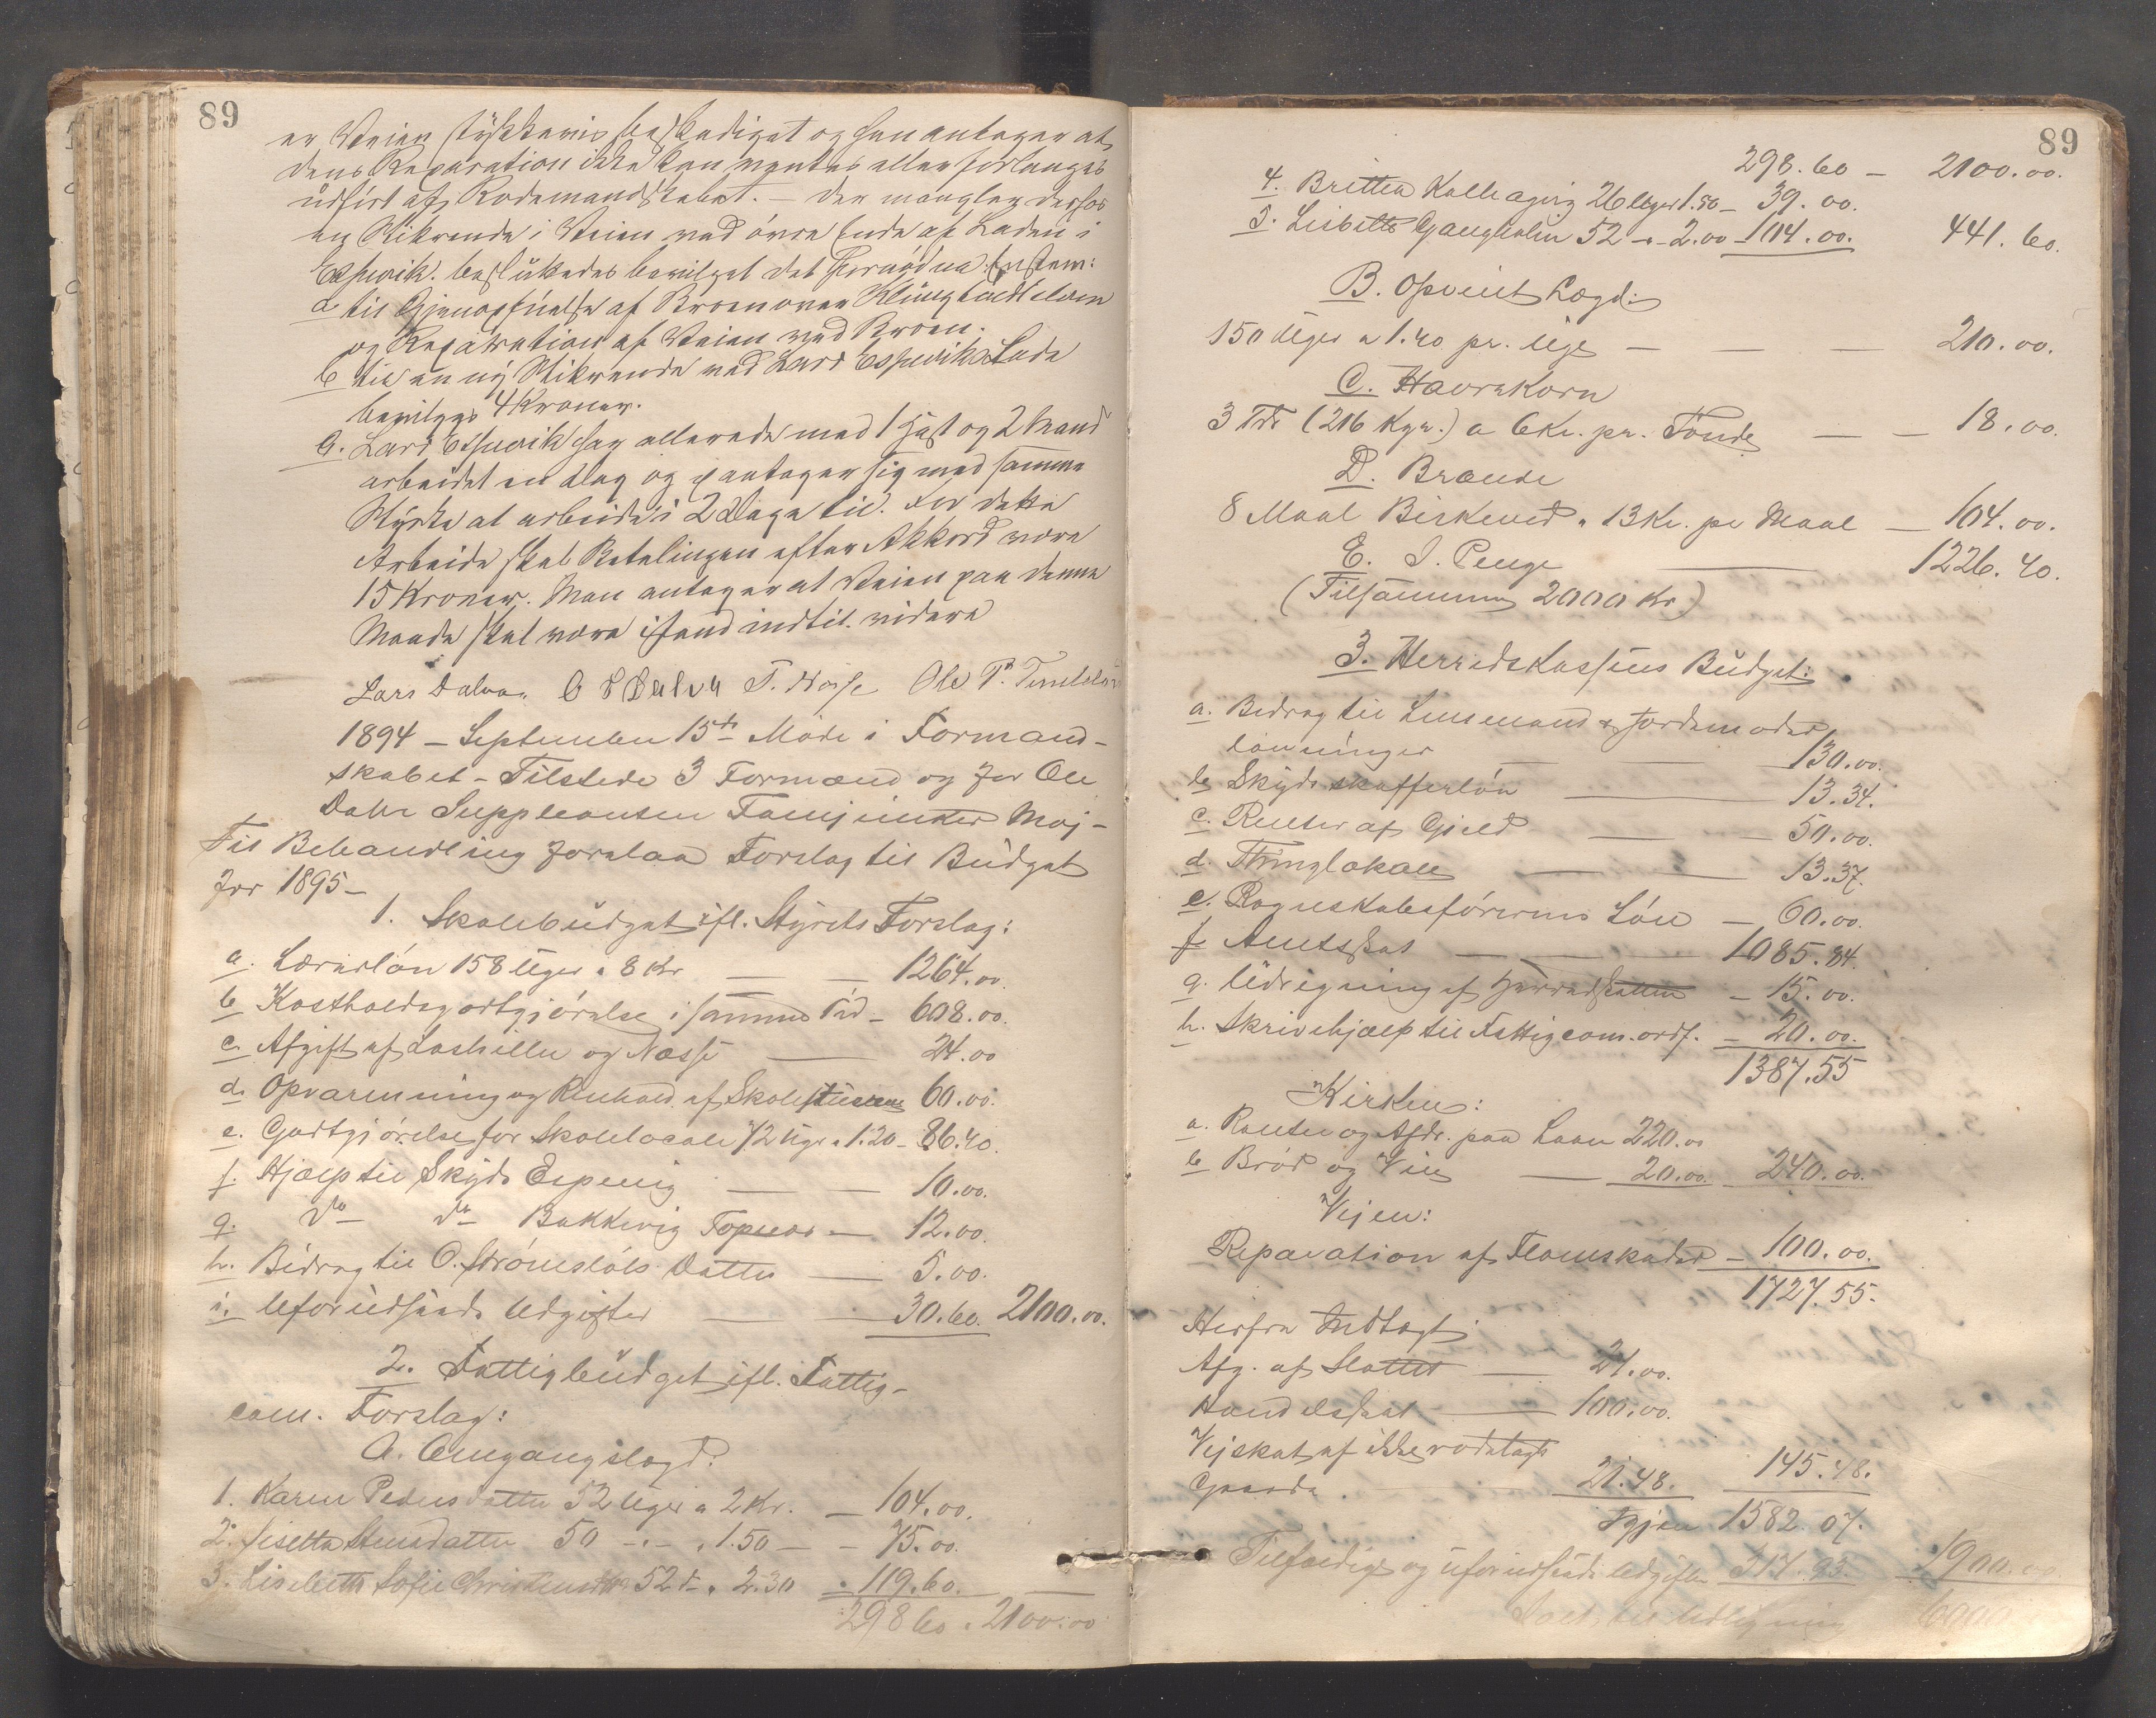 89
er Veien stykkevis beskadiget og han antager at
dens Reparation ikke kan ventes eller forlanges
udført af Rodemandskabet. — Der mangler derfor
en Stikrende i Veien ved øvre Ende af Laden i
Espevik. besluttedes bevilget det fornødne
a til Gjenopførelse af Broen over
og Reparation af Veien ved Broen.
b til en ny Stikrende ved Lars Espeviks Lade
bevilges 4 Kroner.
Lars Espevik har allerede med 1 Hest og 2 Mand
arbeidet en Dag og paatager sig med samme
Styrke at arbeide i 2 Dage til. For dette
Arbeide skal Betalingen efter Akkord være
15 Kroner. Man antager at Veien paa denne
Maade skal være istand indtil videre
Lars Dalva. O S Dalva T. Næsse Ole P.
1894 – September 15de Möde i Formand-
skabet – Tilstede 3 Formænd og for Ole
Dahle Suppleanten
Til Behandling forelaa Forslag til Büdget
for 1895 –
1. Skolebüdget ifl. Styrets Forslag:
a. Lærerlön 158 Uger a 8 Kr — — 1264.00.
b Kostholdsgodtgjörelse i samme Tid – 608.00.
c. Afgift af Lashelle og Næsse — 24.00
d. Opvarmning og Renhold af Skolestuerne 60.00.
e. Godtgjörelse for Skolelocale 72 Uger a 1.20 – 86.40.
f. Hjælp til Skyds Espevig — — 10.00.
g. do do Bakkevig Topnes — 12.00.
h. Bidrag til O. Strömslöls Datter — 5.00.
i. Uforudseede Udgifter — — 30.60. 2100.00.
2. Fattigbüdget ifl. Fattig-
com. Forslag:
A. Omgangslægd:
1. Karen Pedersdatter 52 Uger a 2 Kr. — 104.00.
2. Lisetta Stensdatter 50 -"- " 1.50 — – 75.00.
3. Lisebeth Sofie 52 " – " 2.30 " 119.60.
298 60 " 2100.00
89
298.60 – 2100.00.
4. Britta 26 Uger 1.50 – 39.00.
5. Lisbeth Gangholm 52 – " – 2.00 – 104.00. 441.60.
B. Opvist Lægd:
150 Uger a 1.40 pr. Uge — — 210.00.
C. Havrekorn
3 Tdr (216 Kgr.) a 6 Kr. pr. Tönde — — 18.00.
D. Brænde
8 Maal Birkeved a 13 Kr. pr Maal — 104.00.
E. I Penge — 1226.40.
(Tilsammen 2000 Kr)
3. Herredskassens Büdget:
a. Bidrag til Lensmand & Jordemoder
lønninger — — 130.00.
b Skydsskafferlön — 13.34.
c. Renter af Gjeld — — 50.00.
d. Thinglokale — — 13.37.
e. Regnskabsförerens Lön — 60.00.
f. Amtsskat — — — 1085.84.
g. Udregning af Herredsskatten – 15.00.
h. Skrivehjælp til Fattigcom. ordf. – 20.00.
1387.55
Kirken:
a. Renter og Afdr. paa Laan 220.00
b Bröd og Vin — 20.00. 240.00.
Vejen:
Reparation af Flomskader – 100.00.
1727.55.
Herfra Indtægt
Afg. af Slottet — 24.00.
Handelsskat — 100.00.
Vejskat af ikke rodelagte
Gaarde. — 21.48. 145.48.
Igjen 1582.07.
Tilfældige og uforudseede Udgifter 317.93. 1900.00
til Udligning 6000